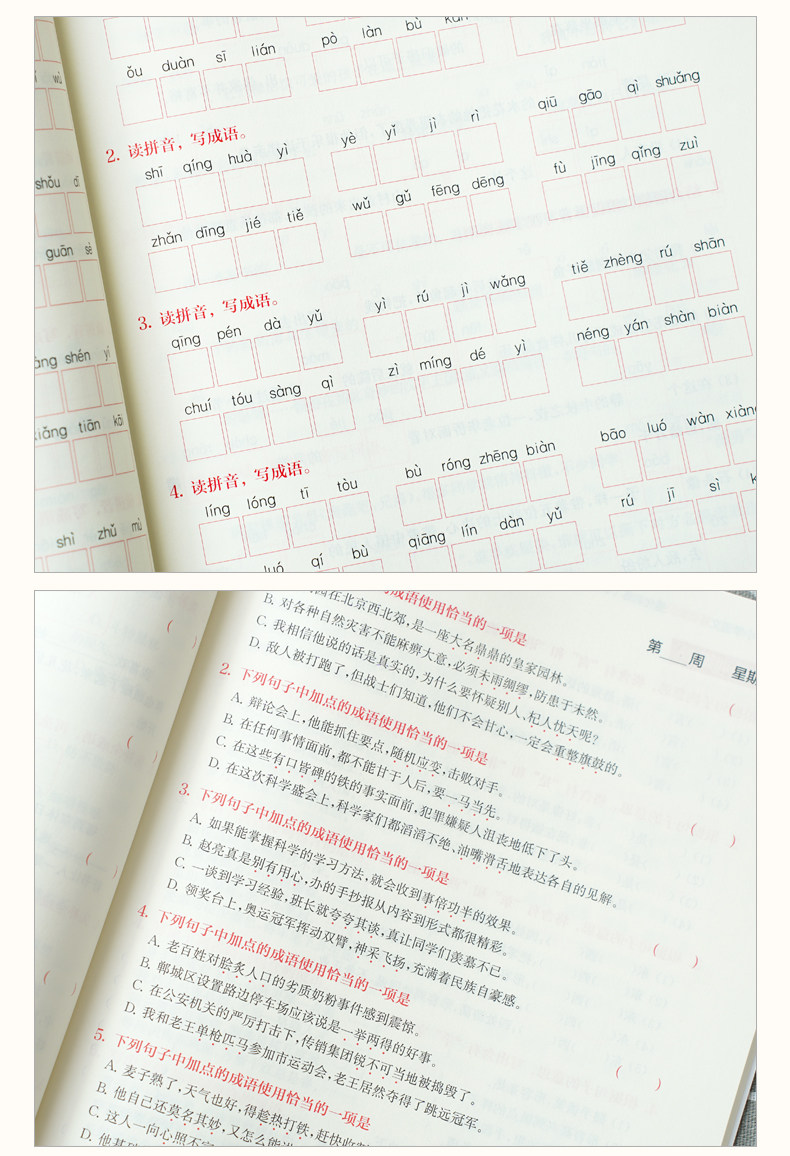 ǒu duàn sī lián
pò làn bù kān
wù
2. 读拼音，写成语。
shī qíng huà yì
yè yǐ jì rì
qiū gāo qì shuǎng
shǒu
zhǎn dīng jié tiě
wǔ gǔ fēng dēng
fù jīng qǐng zuì
guān sè
3. 读拼音，写成语。
qīng pén dà yǔ
yì rú jì wǎng
tiě zhèng rú shān
shén yì
chuí tóu sàng qì
zì míng dé yì
néng yán shàn biàn
xiǎng tiān kāi
4. 读拼音，写成语。
líng lóng tī tòu
bù róng zhēng biàn
bāo luó wàn xiàng
shì zhǔ mù
luó qí bù
qiāng lín dàn yǔ
rú jī sì
成语使用恰当的一项是
在北京西北郊，是一座大名鼎鼎的皇家园林。
B. 对各种自然灾害不能麻痹大意，必须未雨绸缪，防患于未然。
C. 我相信他说的话是真实的，为什么要怀疑别人，杞人忧天呢？
D. 敌人被打跑了，但战士们知道，他们不会甘心，一定会重整旗鼓的。
第 周 星期
( )
2. 下列句子中加点的成语使用恰当的一项是
A. 辩论会上，他能抓住要点，随机应变，击败对手。
B. 在任何事情面前，都不能甘于人后，要一马当先。
C. 在这些有口皆碑的铁的事实面前，犯罪嫌疑人沮丧地低下了头。
D. 在这次科学盛会上，科学家们都滔滔不绝、油嘴滑舌地表达各自的见解。
( )
3. 下列句子中加点的成语使用恰当的一项是
A. 如果能掌握科学的学习方法，就会收到事倍功半的效果。
B. 赵亮真是别有用心，办的手抄报从内容到形式都很精彩。
C. 一谈到学习经验，班长就夸夸其谈，真让同学们羡慕不已。
D. 领奖台上，奥运冠军挥动双臂，神采飞扬，充满着民族自豪感。
( )
4. 下列句子中加点的成语使用恰当的一项是
A. 老百姓对脍炙人口的劣质奶粉事件感到震惊。
B. 郸城区设置路边停车场应该说是一举两得的好事。
C. 在公安机关的严厉打击下，传销集团锐不可当地被捣毁了。
D. 我和老王单枪匹马参加市运动会，老王居然夺得了跳远冠军。
( )
5. 下列句子中加点的成语使用恰当的一项是
A. 麦子熟了，天气也好，得趁热打铁，赶快收
B. 他自己还莫名其妙，又怎么能
C. 这人一向心照不
D. 他基